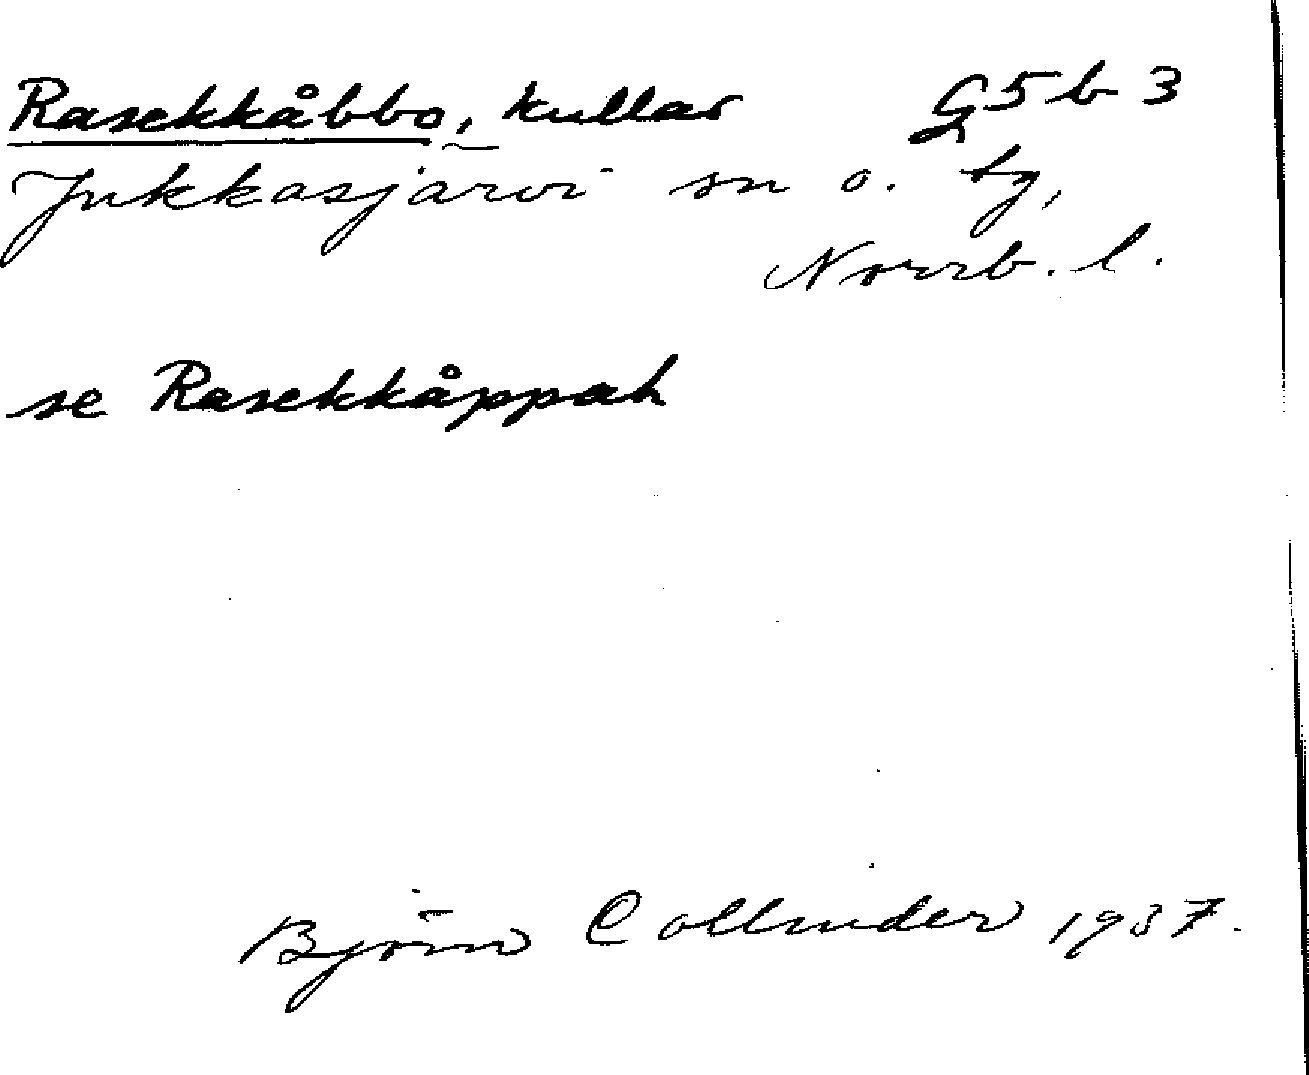 Rasekkåbbo, kullar G5b3
Jukkasjärvi sn o. by,
Norrb. l.
se Rasekkåppah
Björn Collinder 1937.